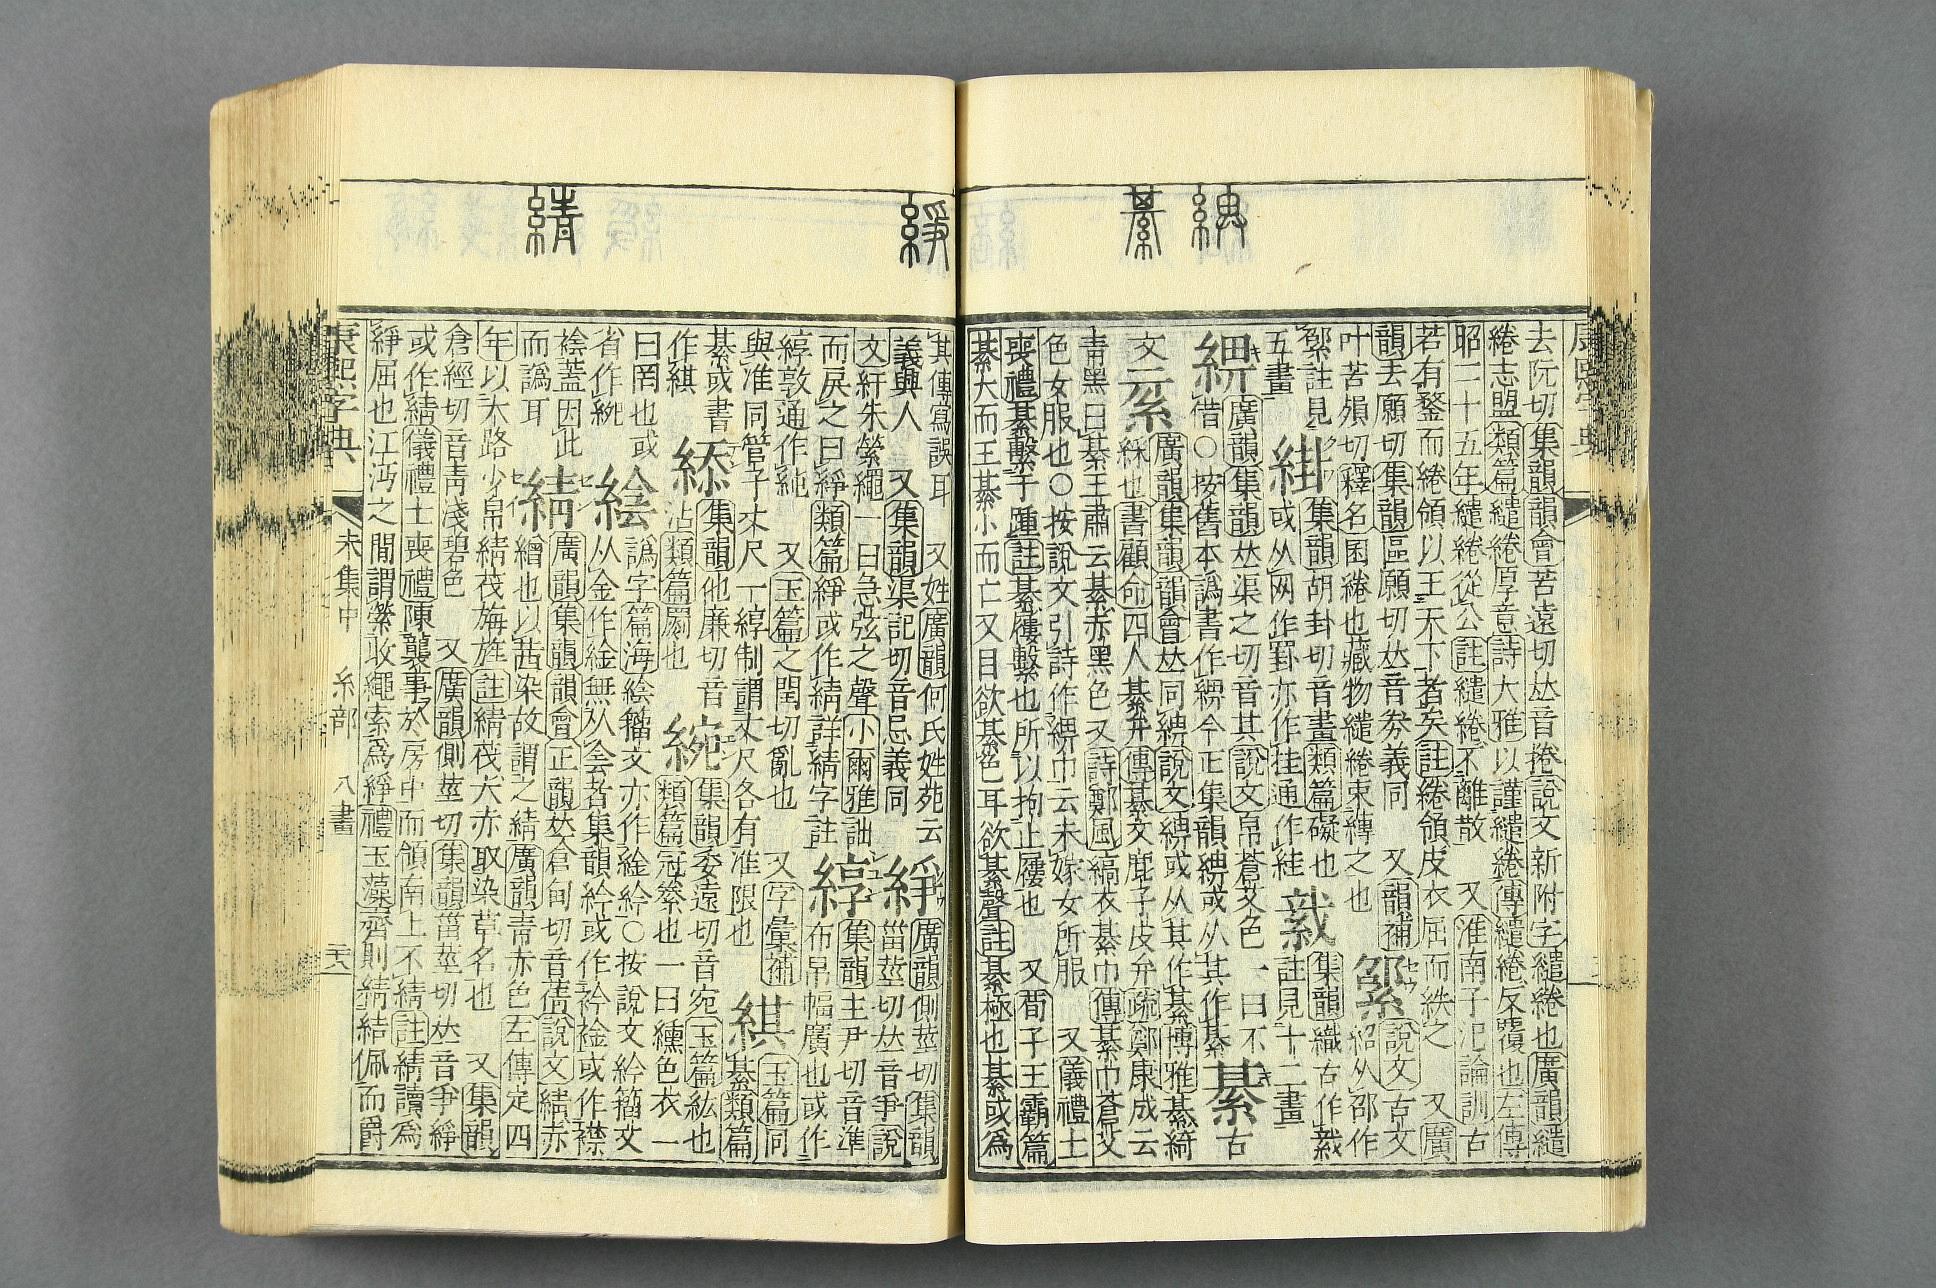 綥
綦
去阮切集韻韻會苦遠切𠀤音捲說文新附字繾綣也廣韻繾
綣志盟類篇繾綣厚意詩大雅以謹繾綣傳繾綣反覆也左傳
昭二十五年繾綣從公註繾綣不離散 又淮南子氾論訓古
若有鍪而綣領以王天下者矣註綣領皮衣屈而紩之 又廣
韻去願切集韻區願切𠀤音券義同 又韻補
叶苦殞切釋名囷綣也藏物繾綣束縛之也 綤 說文古文
紹从邵作
綤註見
五畫 絓 集韻胡卦切音畫類篇礙也
或从网作罫亦作挂通作絓 集韻織古作
註見十二畫
綥 廣韻集韻𠀤渠之切音其說文帛蒼艾色一曰不
借○按舊本譌書作綥今正集韻綥或从其作綦 綦 古
文 廣韻集韻韻會𠀤同綥說文綥或从其作綦博雅綦綺
綵也書顧命四人綦弁傳綦文鹿子皮弁疏鄭康成云
靑黑曰綦王肅云綦赤黑色又詩鄭風縞衣綦巾傳綦巾蒼艾
色女服也○按說文引詩作綥巾云未嫁女所服 又儀禮士
喪禮綦繫于踵註綦屨繫也所以拘止屨也 又荀子王霸篇
綦大而王綦小而亡又目欲綦色耳欲綦聲註綦極也綦或爲
綪
其傳寫誤耳 又姓廣韻何氏姓苑云
義興人 又集韻渠記切音忌義同 綪 廣韻側莖切集韻
甾莖切𠀤音爭說
文紆朱縈繩一曰急弦之聲小爾雅詘
而戾之曰綪類篇綪或作綪詳綪字註 綧 集韻主尹切音準
布帛幅廣也或作
綧敦通作純 又玉篇之閏切亂也 又字彙補
與准同管子丈尺一綧制謂丈尺各有准限也 綨 玉篇同
綦類篇
綦或書
作綨 集韻他廉切音
沾類篇罽也 綩 集韻委遠切音宛玉篇紘也
類篇冠縏也一曰纁色衣一
曰罔也或
省作𦀌 譌字篇海絵籀文亦作䋮紟○按說文紟籀文
从金作䋮無从会者集韻紟或作衿襘或作襟
捦蓋因此
而譌耳 綪 廣韻集韻韻會正韻𠀤倉甸切音蒨說文綪赤
繒也以茜染故謂之綪廣韻靑赤色左傳定四
年以大路少帛綪茷旃旌註綪茷大赤取染草名也 又集韻
倉經切音靑淺碧色 又廣韻側莖切集韻甾莖切𠀤音爭綪
或作綪儀禮士喪禮陳襲事於房中而領南上不綪註綪讀爲
綪屈也江沔之閒謂縈收繩索爲綪禮玉藻齊則綪結佩而爵
康熙字典
未集中 糸部 八畫